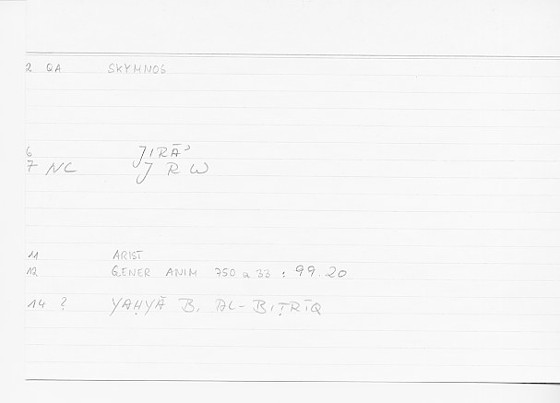 2 QA SKYMNOS
6 JIRĀʾ
7 NC J R W
11 ARIST
12 GENER ANIM 750 a 33 : 99.20
14 ? YAḤYĀ B. AL-BIṬRĪQ